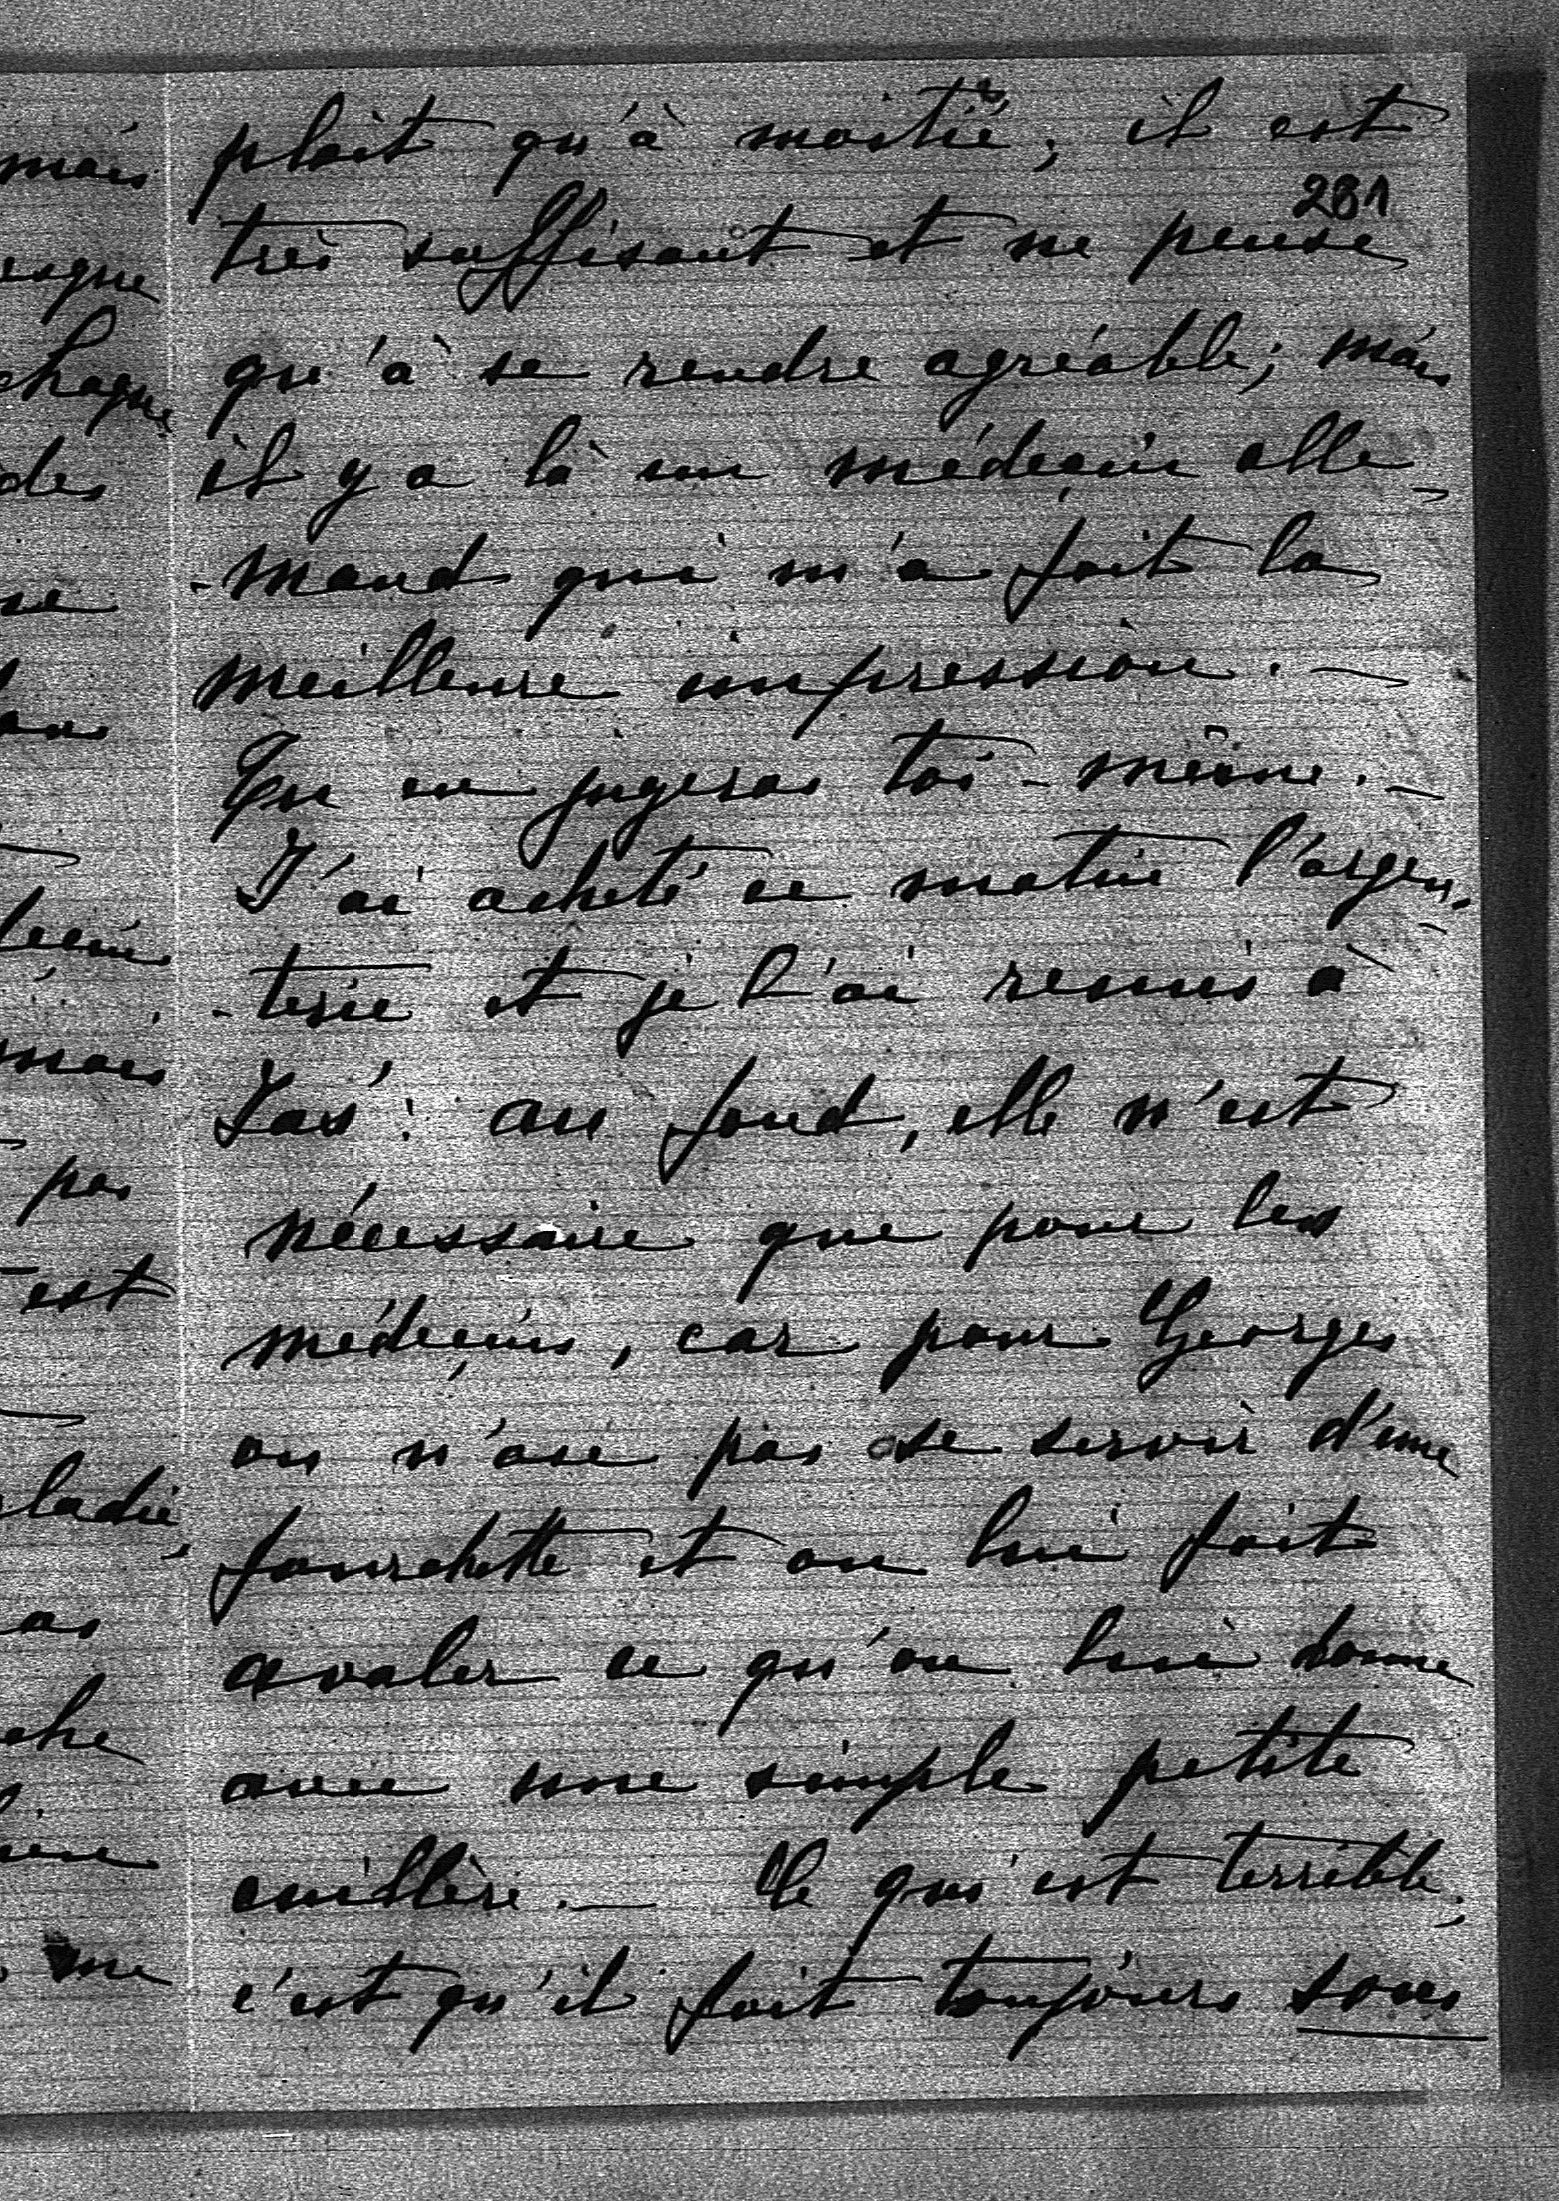 plait qu'à moitié; il est
281
très suffisant et ne pense
qu'à se rendre agréable; mais
il y a là un médeçin alle-
-mand qui m'a fait la
meilleure impression. —
Tu en jugeras toi-même. —
J'ai acheté ce matin l'argen-
-terie et je l'ai remis à
au fond, elle n'est
nécessaire que pour les
médeçins, car pour Georges
on n'ose pas se servir d'une
fourchette et on lui fait
avaler ce qu'on lui donne
avec une simple petite
cuillère. — Ce qui est terrible,
c'est qu'il fait toujours sous
mais
chaque
des
mais
pas
est